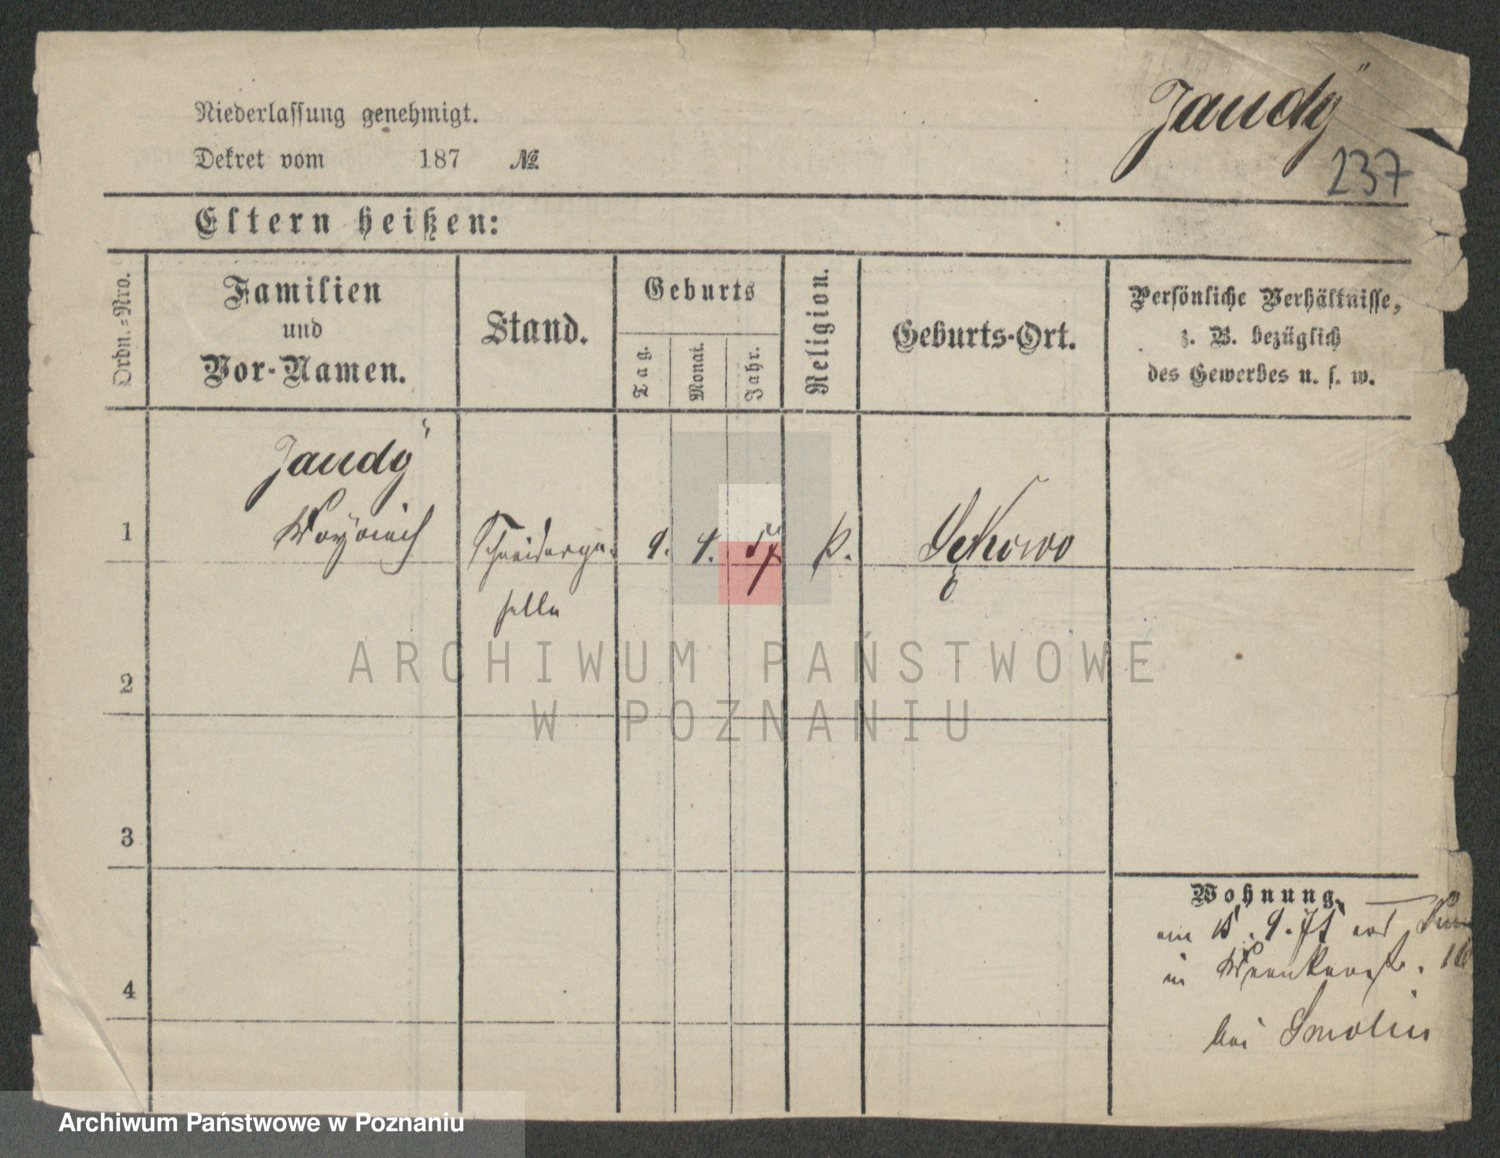 Niederlassung genehmigt.
Dekret vom 187 №
Jandÿ
237
Eltern heißen:
Ordn.=Nro.
Familien
und
Vor-Namen.
Stand.
Geburts
Tag.
Monat.
Jahr.
Religion.
Geburts-Ort.
Persönliche Verhältnisse,
z. B. bezüglich
des Gewerbes u. s. w.
Jandÿ
1
Schneiderge-
9. 4. 57
k.
selle
2
3
4
Wohnung.
in
bei Smolin
ARCHIWUM PAŃSTWOWE
W POZNANIU
Archiwum Państwowe w Poznaniu